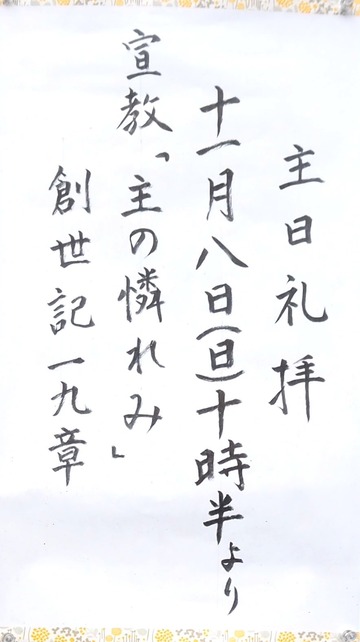 主日礼拝
十一月八日(日)十時半より
宣教「主の憐れみ」
創世記一九章